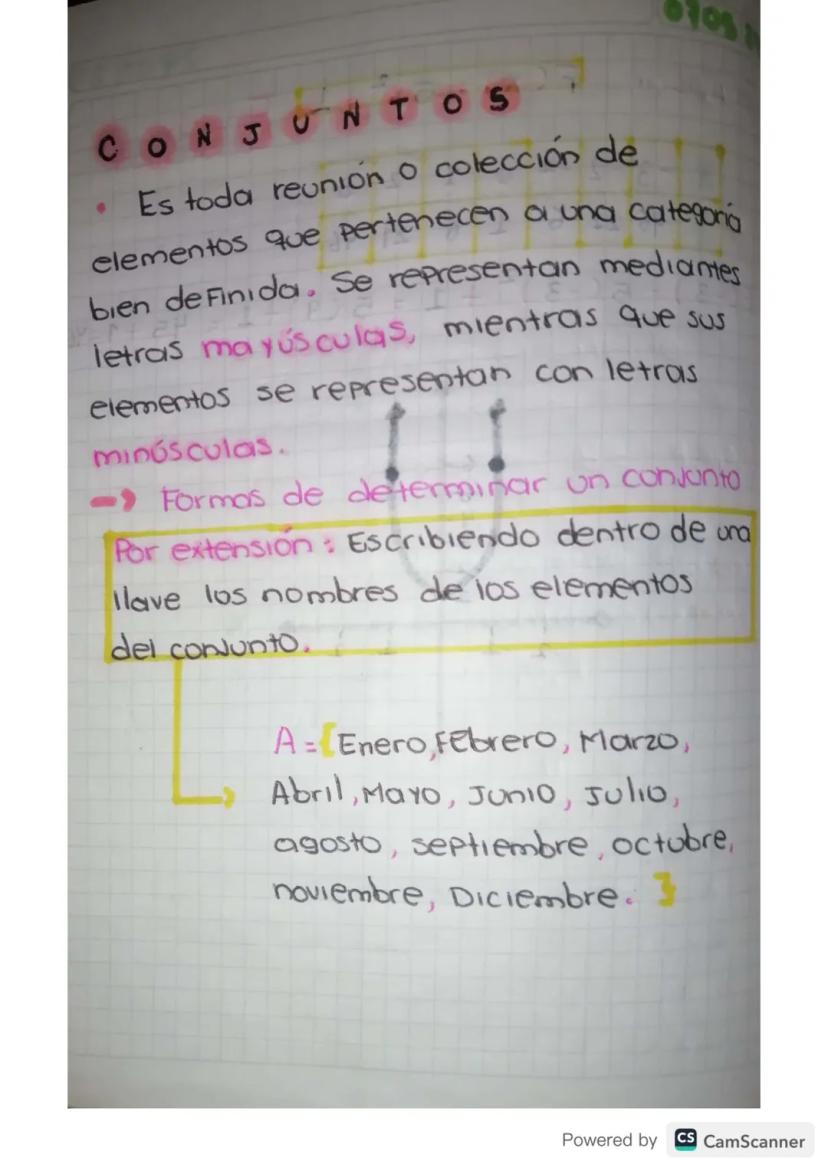 CONJUNTOS
• Es toda reunión o colección de
elementos que pertenecen a una categoría
bien definida. Se representan mediantes
letras mayúsculas, mientras que sus
elementos se representan con letras
minúsculas.
→ Formas de determinar un conjunto
Por extensión: Escribiendo dentro de una
llave los nombres de los elementos
del conjunto.
A={Enero, Febrero, Marzo,
Abril, Mayo, Junio, Julio,
agosto, septiembre, octubre,
noviembre, Diciembre. }
Powered by CS CamScanner